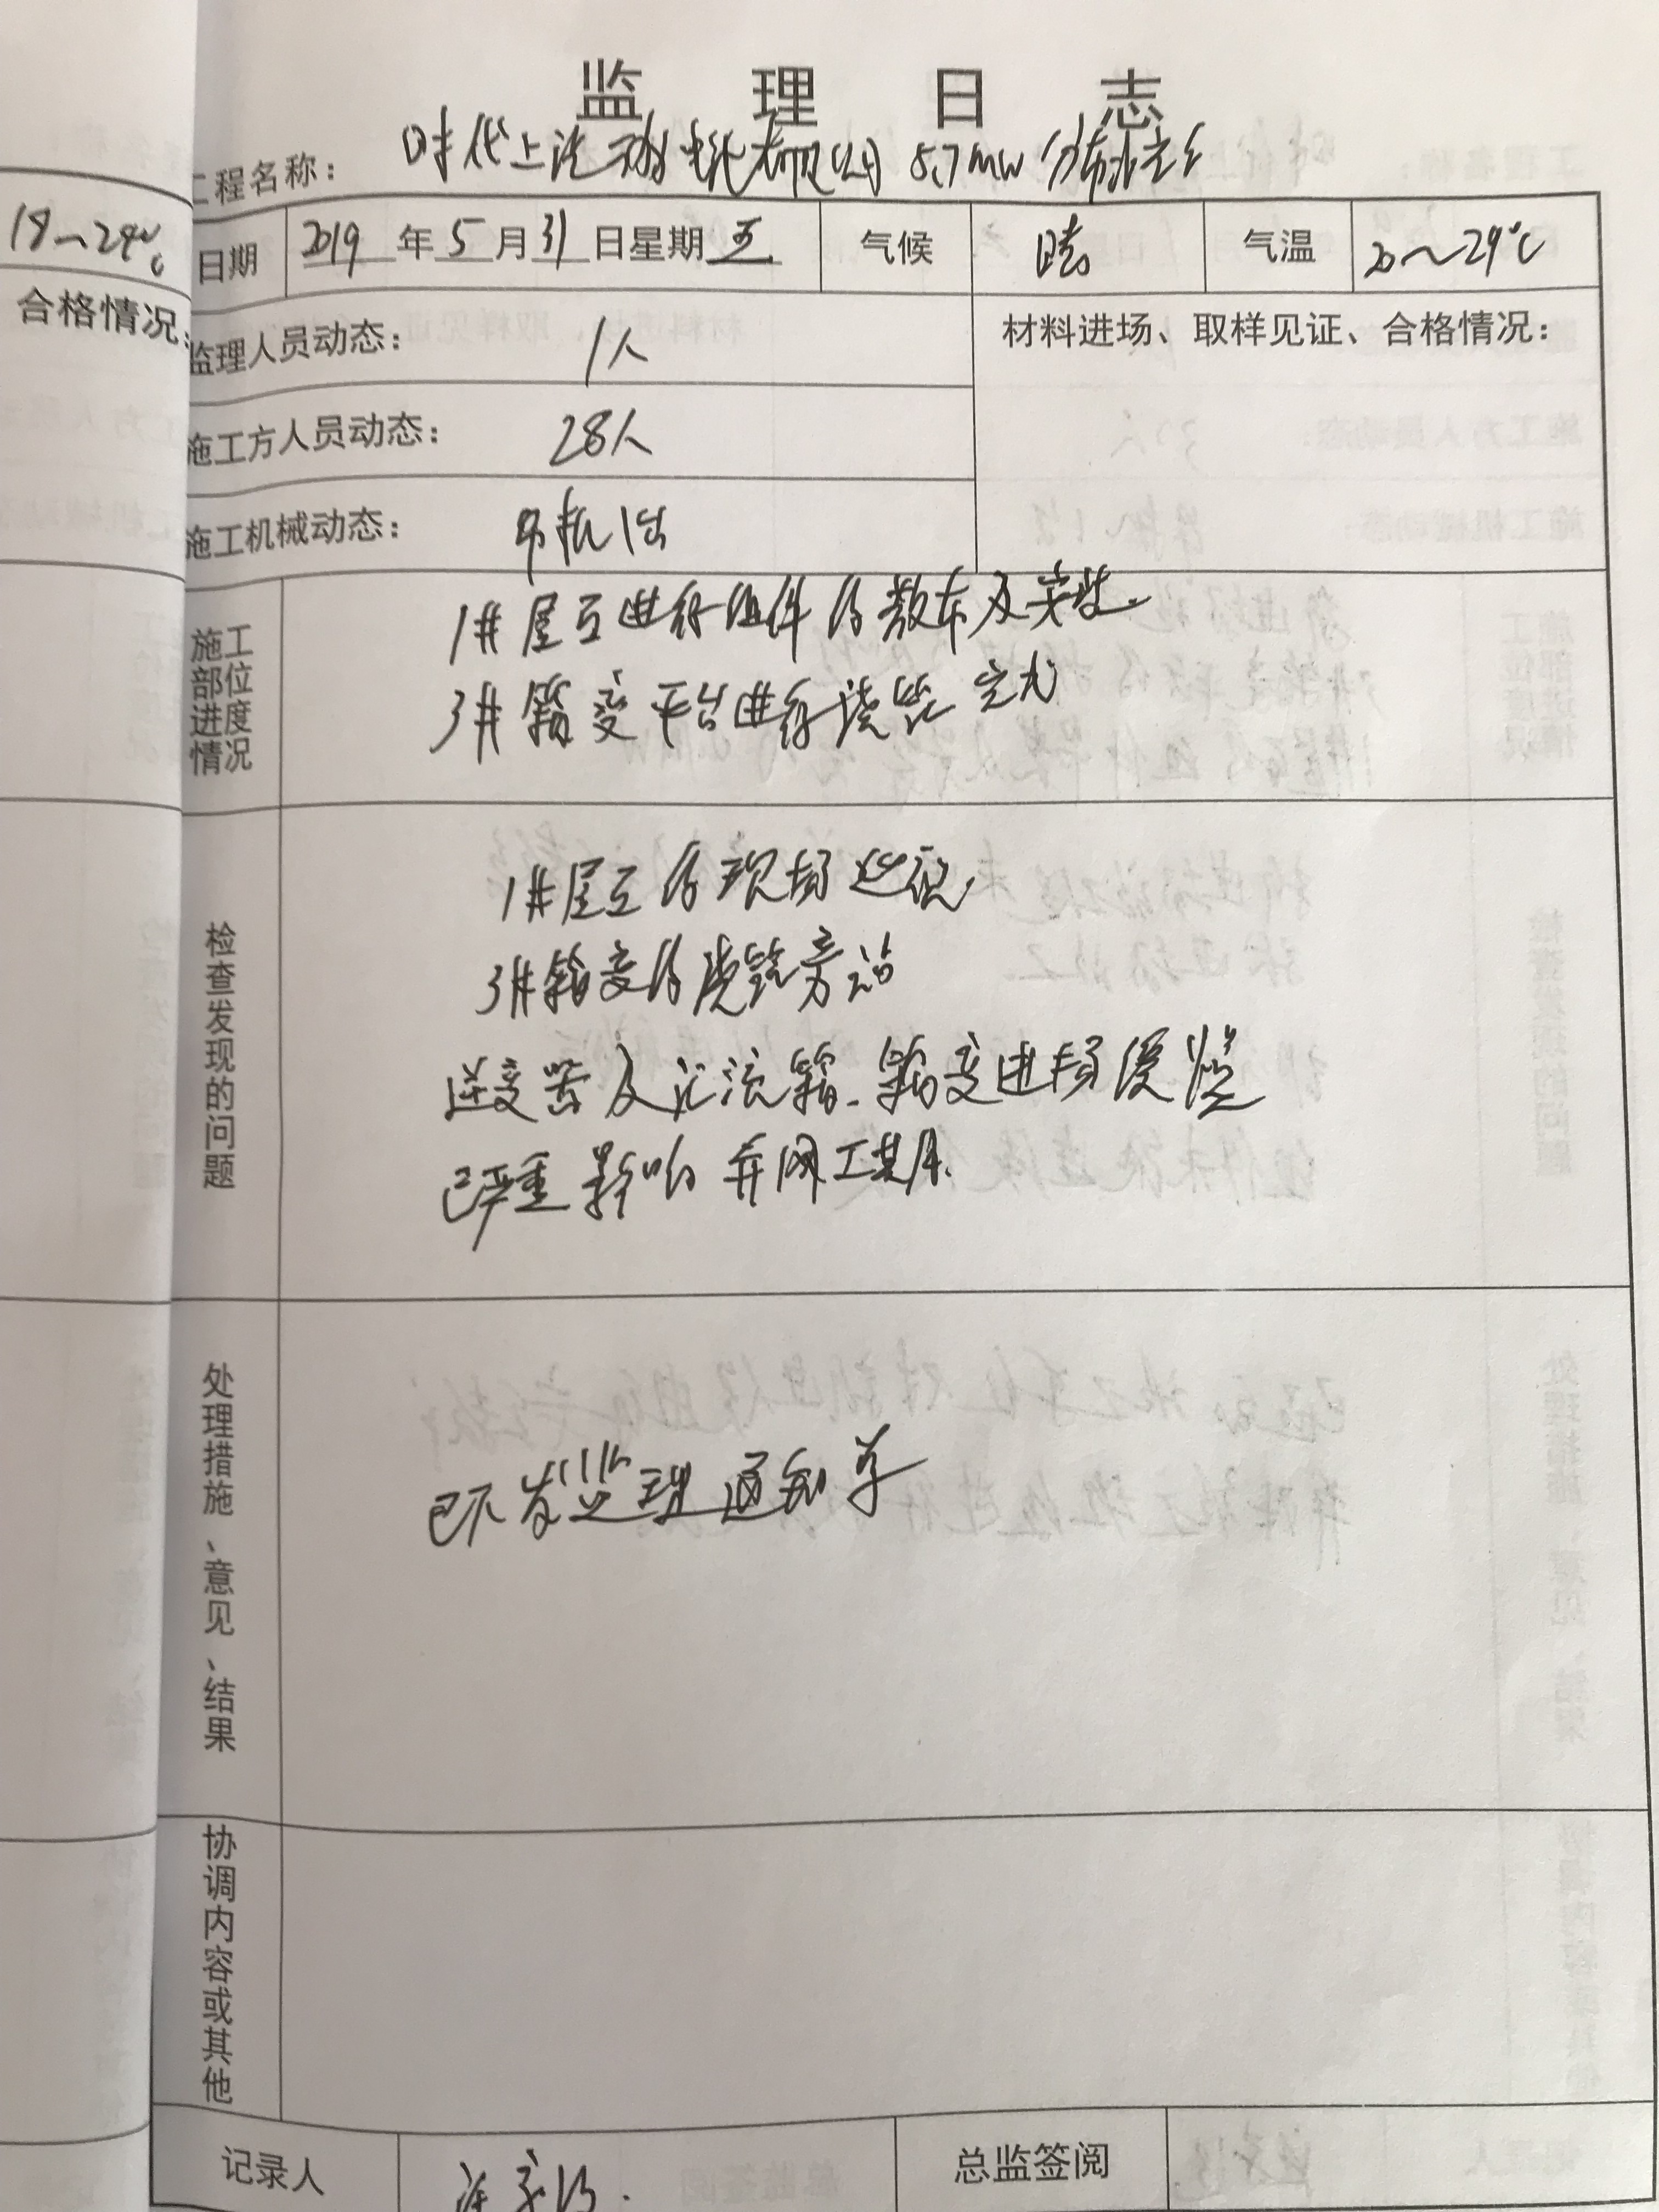 监理日志
工程名称： 时代上汽动力电池有限公司 5.7mw 分布式
18～24℃
日期 2019 年 5 月 31 日星期 五 气候 晴 气温 20～29℃
合格情况：
监理人员动态： 1人 材料进场、取样见证、合格情况：
施工方人员动态： 28人
施工机械动态： 吊机1台
施工部位进度情况
1#屋面进行组件的散布及安装.
3#箱变平台进行浇筑完成
检查发现的问题
1#屋面的现场巡视.
3#箱变的浇筑旁站
逆变器及汇流箱、箱变进场缓慢
已严重影响并网工期.
处理措施、意见、结果
已下发监理通知单
协调内容或其他
记录人 总监签阅